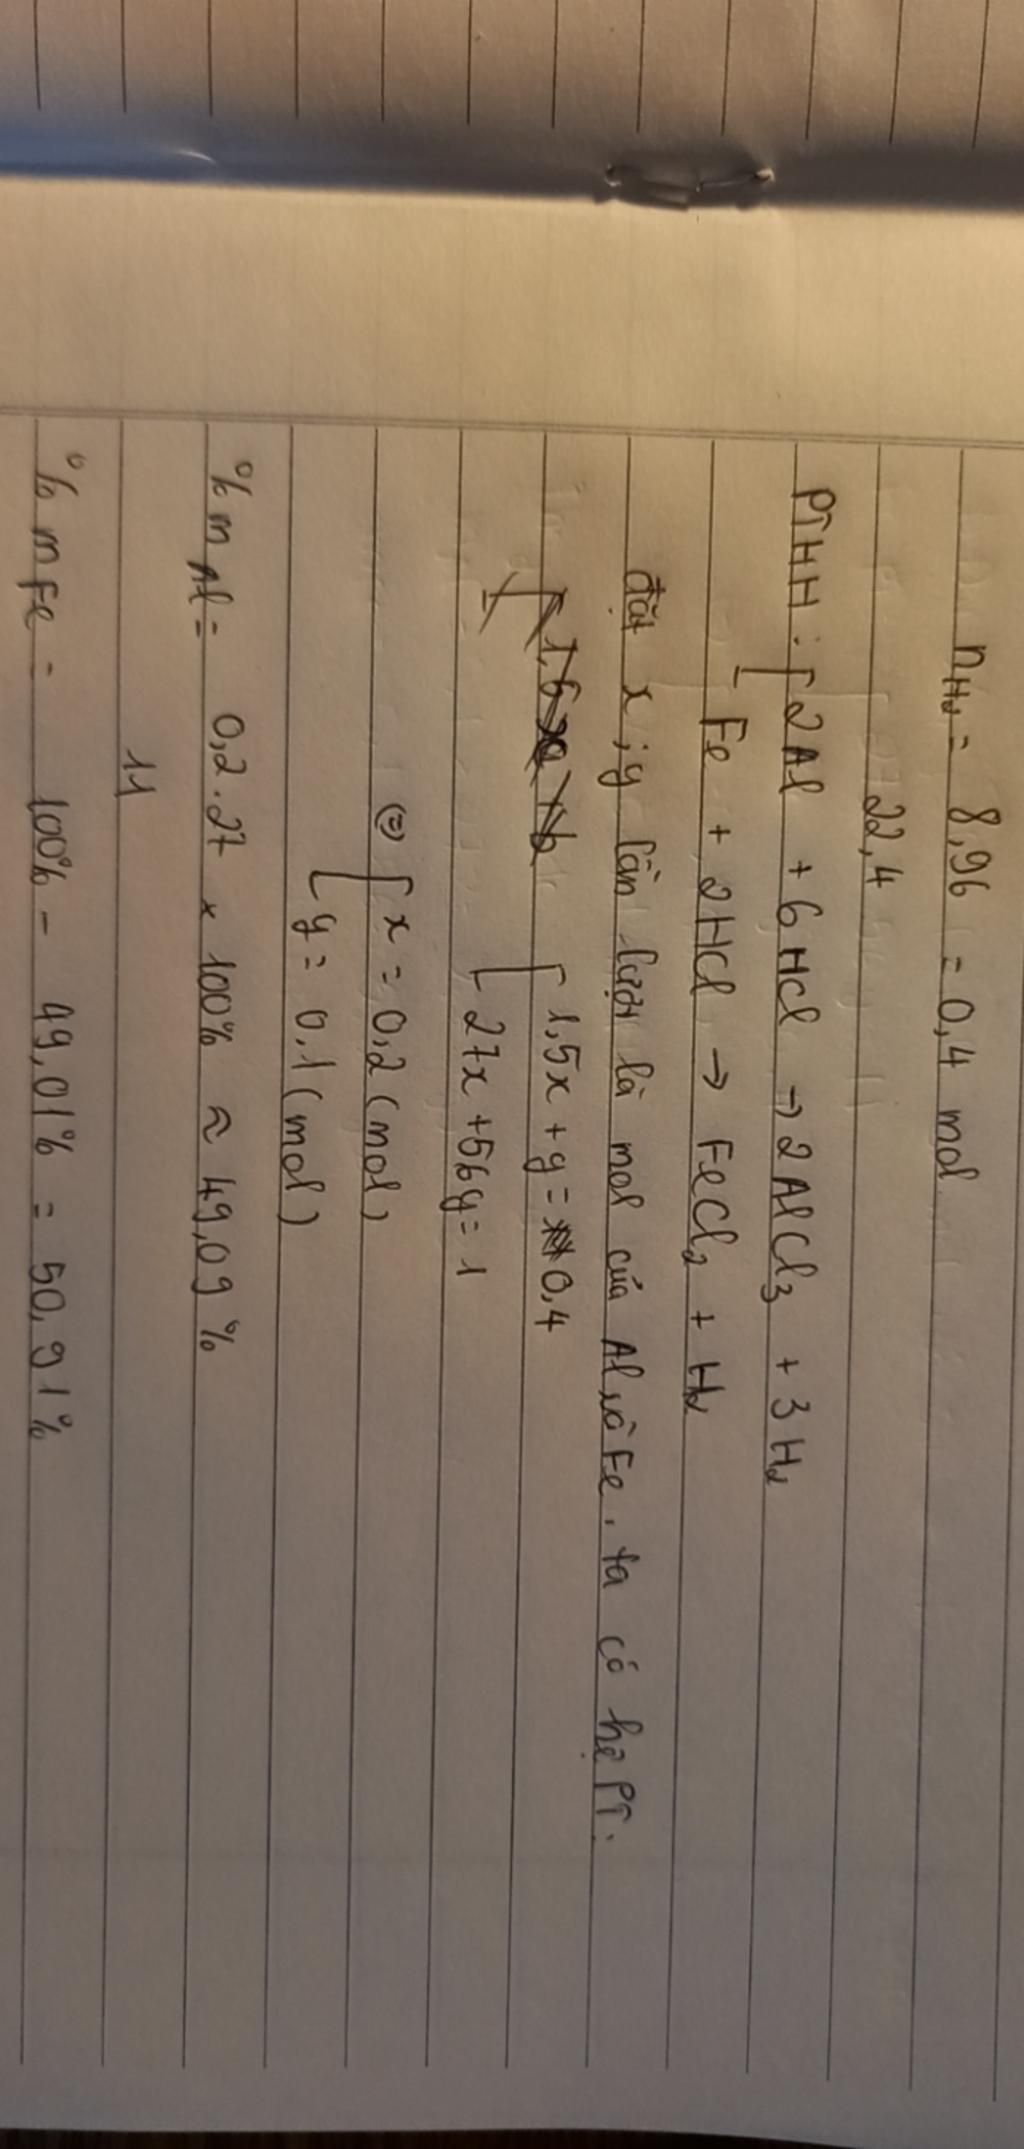 nH₂ = 8,96 = 0,4 mol
22,4
PTHH : 2Al + 6HCl → 2AlCl₃ + 3H₂
Fe + 2HCl → FeCl₂ + H₂
đặt x ; y lần lượt là mol của Al và Fe, ta có hệ PT:
1,5x + y = 0,4
27x + 56y = 1
(=) x = 0,2 (mol)
y = 0,1 (mol)
% mAl = 0,2 . 27 × 100% ≈ 49,09 %
11
% mFe = 100% - 49,01% = 50,91%